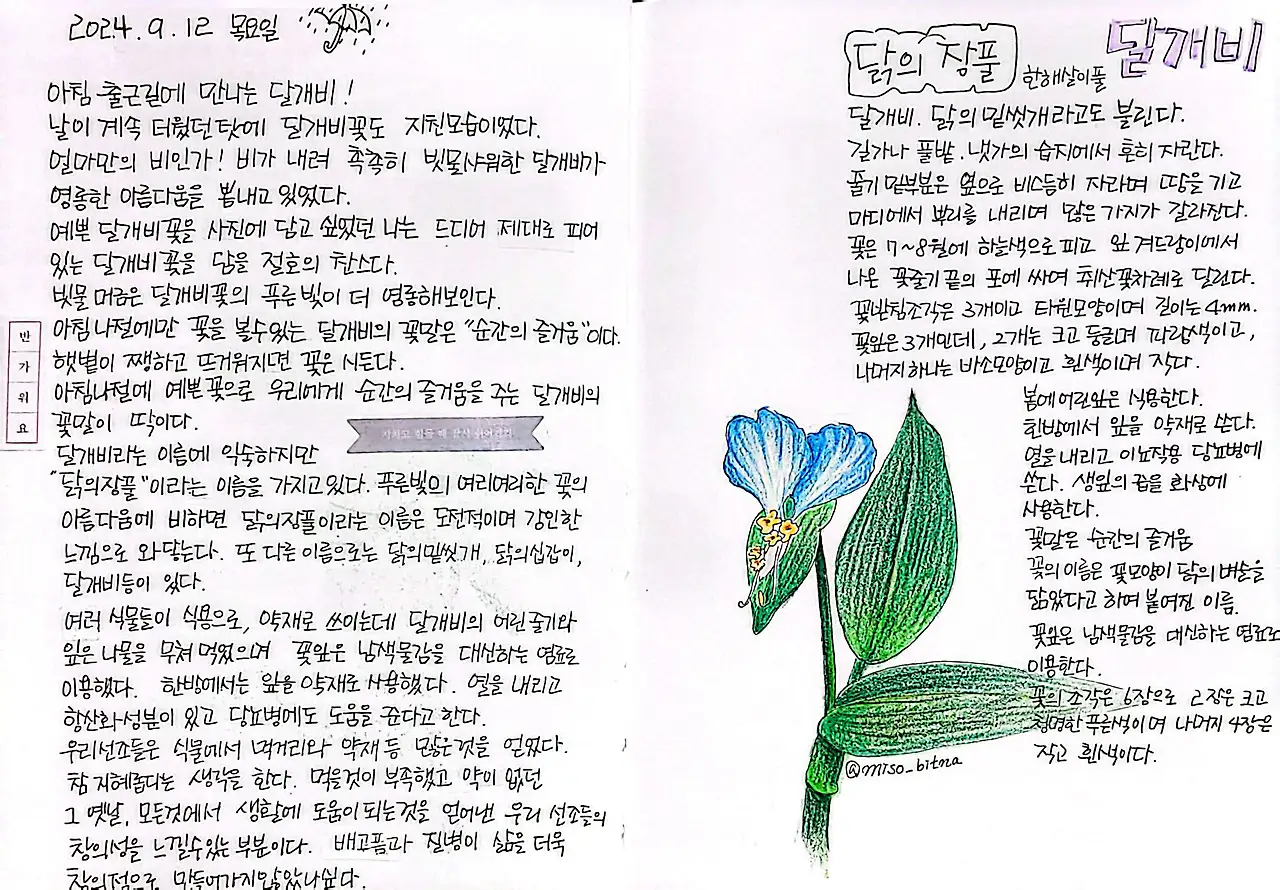 2024. 9. 12 목요일
아침 출근길에 만나는 달개비!
날이 계속 더웠던 탓에 달개비꽃도 지친모습이었다.
얼마만의 비인가! 비가 내려 촉촉히 빗물샤워한 달개비가
영롱한 아름다움을 뽐내고 있었다.
예쁜 달개비꽃을 사진에 담고 싶었던 나는 드디어 제대로 피어
있는 달개비꽃을 담을 절호의 찬스다.
빗물 머금은 달개비꽃의 푸른빛이 더 영롱해보인다.
아침나절에만 꽃을 볼수있는 달개비의 꽃말은 "순간의 즐거움"이다.
햇볕이 쨍하고 뜨거워지면 꽃은 시든다.
아침나절에 예쁜꽃으로 우리에게 순간의 즐거움을 주는 달개비의
꽃말이 딱이다.
달개비라는 이름에 익숙하지만
"닭의장풀"이라는 이름을 가지고있다. 푸른빛의 여리여리한 꽃의
아름다움에 비하면 닭의장풀이라는 이름은 도전적이며 강인한
느낌으로 와닿는다. 또 다른 이름으로는 닭의밑씻개, 닭의십갑이,
달개비등이 있다.
여러 식물들이 식용으로, 약재로 쓰이는데 달개비의 어린줄기와
잎은 나물을 무쳐 먹었으며 꽃잎은 남색물감을 대신하는 염료로
이용했다. 한방에서는 잎을 약재로 사용했다. 열을 내리고
항산화성분이 있고 당뇨병에도 도움을 준다고 한다.
우리선조들은 식물에서 먹거리와 약재 등 많은것을 얻었다.
참 지혜롭다는 생각을 한다. 먹을것이 부족했고 약이 없던
그 옛날, 모든것에서 생활에 도움이 되는것을 얻어낸 우리 선조들의
창의성을 느낄수있는 부분이다. 배고픔과 질병이 삶을 더욱
창의적으로 만들어가지않았나싶다.
반
가
워
요
닭의 장풀
한해살이풀
달개비
달개비. 닭의 밑씻개라고도 불린다.
길가나 풀밭. 냇가의 습지에서 흔히 자란다.
줄기 밑부분은 옆으로 비스듬히 자라며 땅을 기고
마디에서 뿌리를 내리며 많은 가지가 갈라진다.
꽃은 7~8월에 하늘색으로 피고 잎 겨드랑이에서
나온 꽃줄기 끝의 포에 싸여 취산꽃차례로 달린다.
꽃받침조각은 3개이고 타원모양이며 길이는 4mm.
꽃잎은 3개인데, 2개는 크고 둥글며 파랑색이고,
나머지 하나는 바소모양이고 흰색이며 작다.
봄에 어린잎은 식용한다.
한방에서 잎을 약재로 쓴다.
열을 내리고 이뇨작용 당뇨병에
쓴다. 생잎의 즙을 화상에
사용한다.
꽃말은 순간의 즐거움
꽃의 이름은 꽃모양이 닭의 벼슬을
닮았다고 하여 붙여진 이름.
꽃잎은 남색물감을 대신하는 염료로
이용한다.
꽃의 조각은 6장으로 2장은 크고
청명한 푸른색이며 나머지 4장은
작고 흰색이다.
@miso_bitna